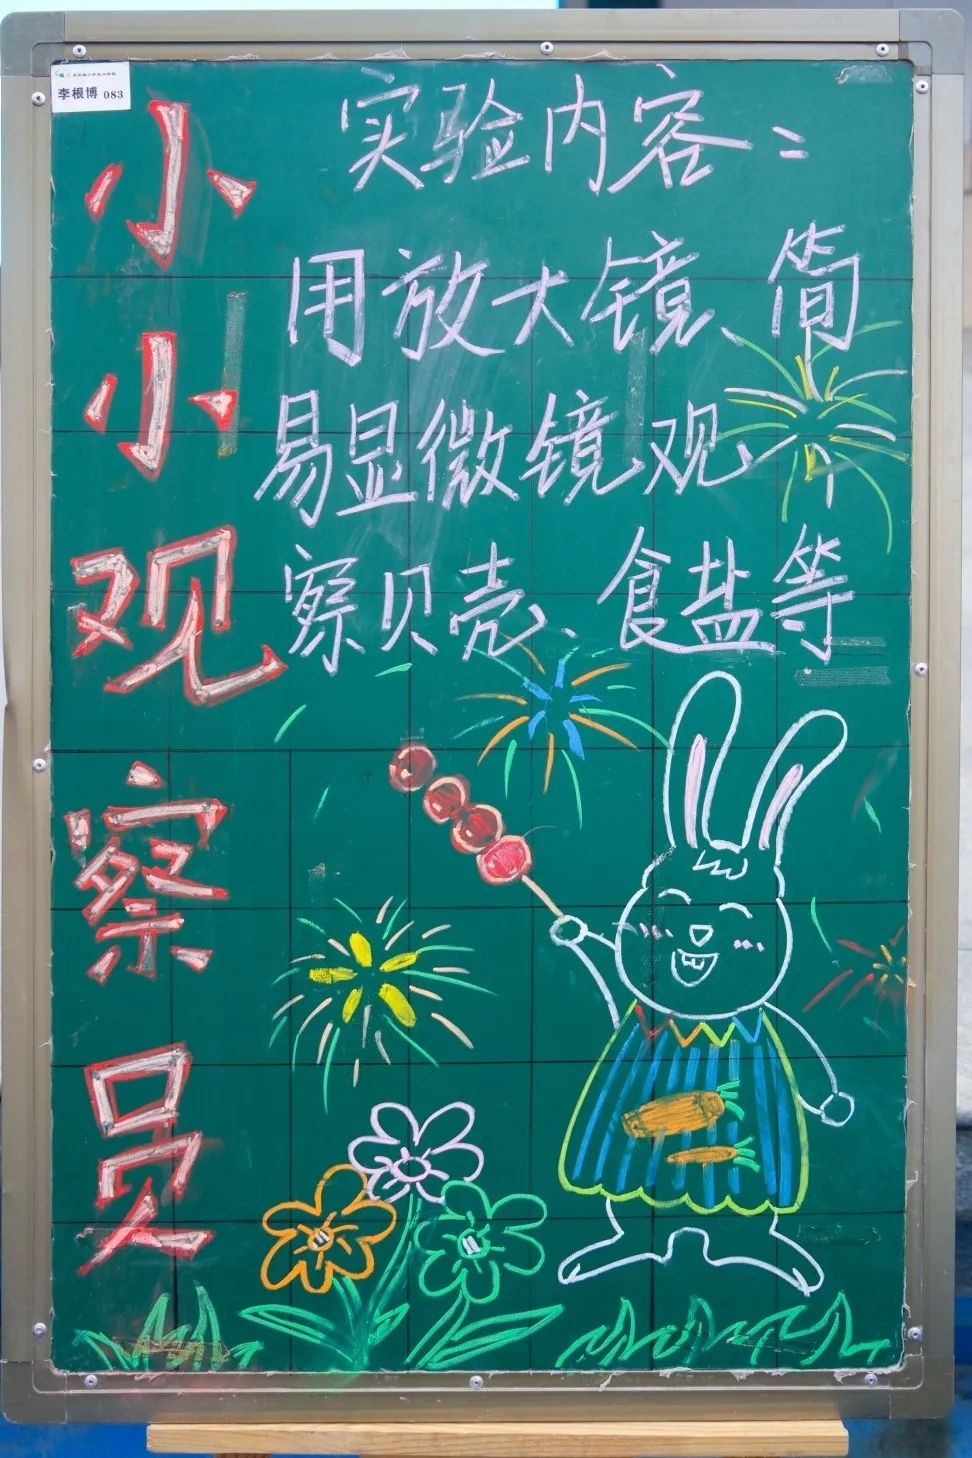 李根博 083
小小观察员
实验内容：
用放大镜、简
易显微镜观
察贝壳、食盐等